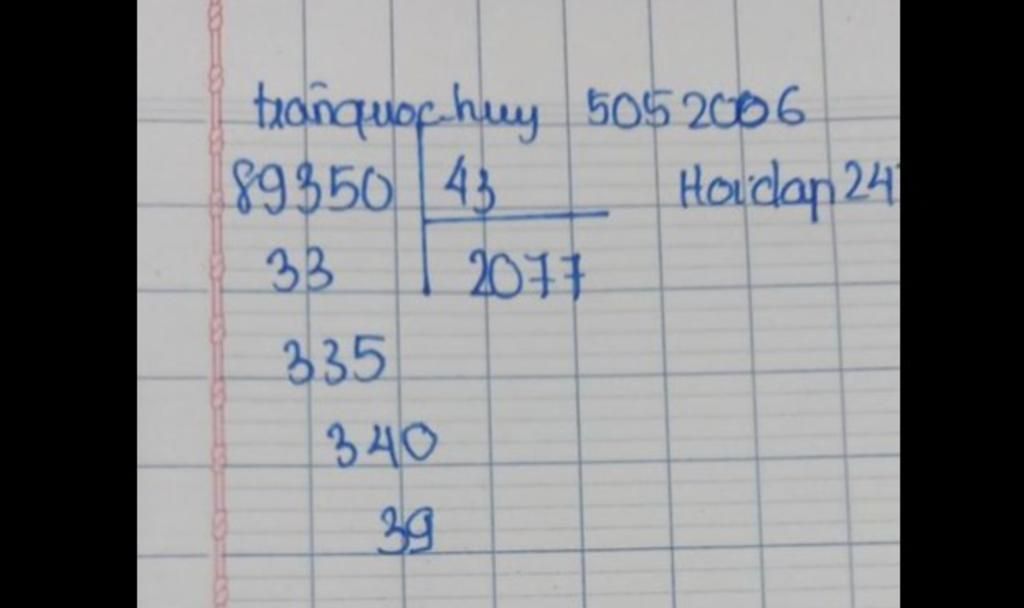 trần quốc huy 5052006
89350 43 Hoidap 24
33 2077
335
340
39